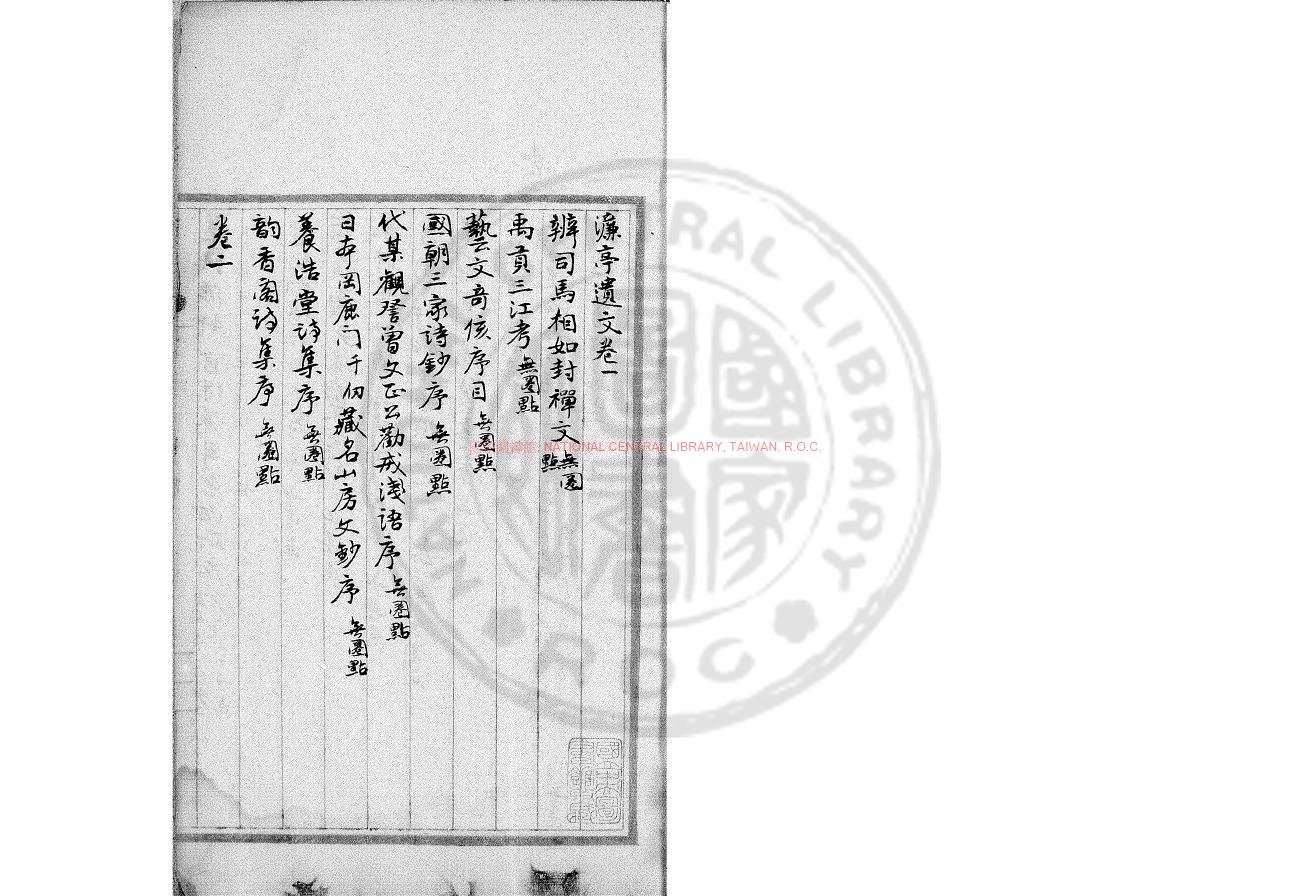 濂亭遺文卷一
辨司馬相如封禪文 無圈點
禹貢三江考 無圈點
藝文奇侅序目 無圈點
國朝三家詩鈔序 無圈點
代某觀詧曾文正公勸戒淺語序 無圈點
日本岡鹿门千仞藏名山房文鈔序 無圈點
養浩堂诗集序 無圈點
韵香阁诗集序 無圈點
卷二
NATIONAL CENTRAL LIBRARY, TAIWAN, R.O.C.
國家圖書館藏